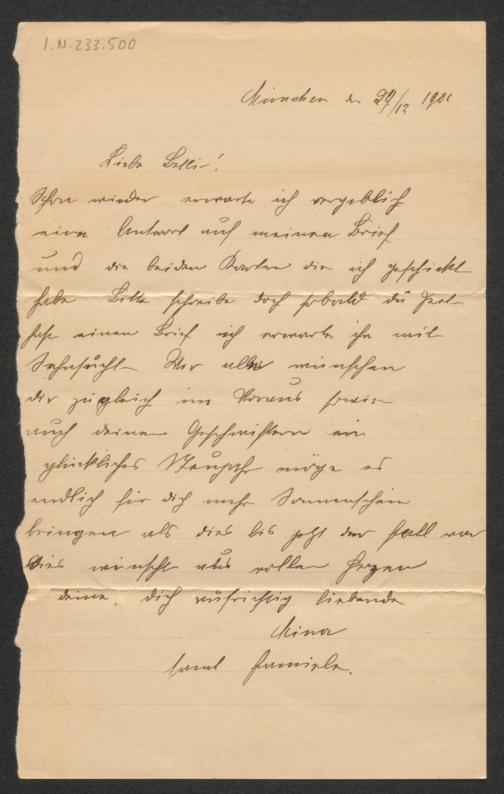 I.N.233.500
München den 29/12 1901
Liebe Betti!
Schon wieder erwarte ich vergeblich
eine Antwort auf meinen Brief
und die beiden Karten die ich geschickt
habe Bitte schreibe doch sobald du Zeit
hast einen Brief ich erwarte ihn mit
Sehnsucht Wir alle wünschen
dir zugleich im Voraus sowie
auch deinen Geschwistern ein
glückliches Neujahr möge es
endlich für dich mehr Sonnenschein
bringen als dies bis jetzt der Fall war
Dies wünscht aus vollem Herzen
deine dich aufrichtig liebende
Mina
samt Famiele.